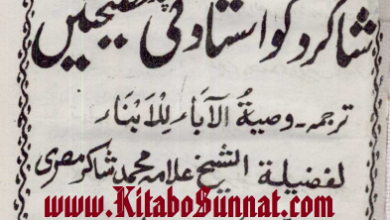 شاگرد کو استاد کی نصیحتیں
ترجمہ۔ وصیۃُ الآبَاءِ لِلْأبنَاء
لفضیلة الشیخ علامہ محمد شاکر مصری
www.KitaboSunnat.com